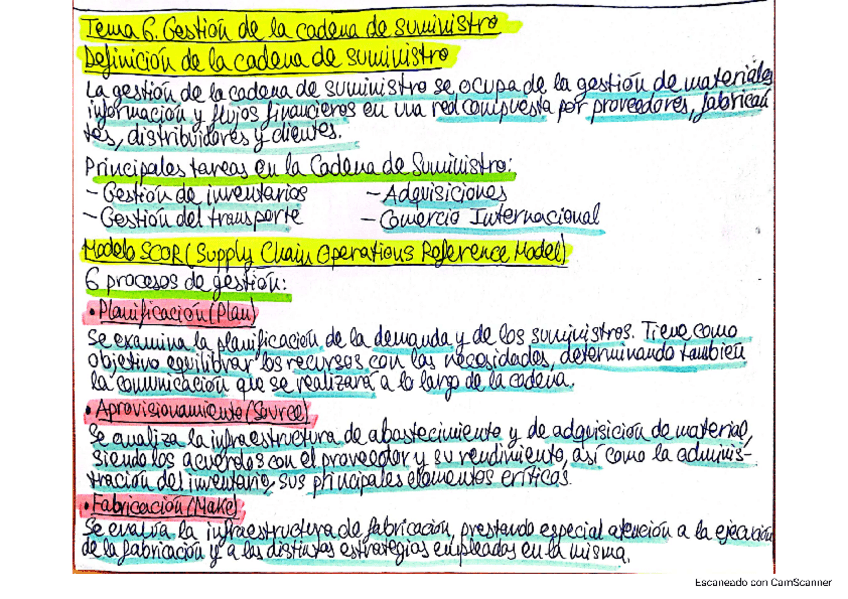 Tema 6. Gestión de la cadena de suministro
Definición de la cadena de suministro
La gestión de la cadena de suministro se ocupa de la gestión de materiales
información y flujos financieros en una red compuesta por proveedores, fabrican
tes, distribuidores y clientes.
Principales tareas en la Cadena de Suministro:
- Gestión de inventarios - Adquisiciones
- Gestión del transporte - Comercio Internacional
Modelo SCOR (Supply Chain Operations Reference Model)
6 procesos de gestión:
• Planificación (Plan)
Se examina la planificación de la demanda y de los suministros. Tiene como
objetivo equilibrar los recursos con las necesidades, determinando también
la comunicación que se realizará a lo largo de la cadena.
• Aprovisionamiento (Source)
Se analiza la infraestructura de abastecimiento y de adquisición de material,
siendo los acuerdos con el proveedor y su rendimiento, así como la adminis-
tración del inventario, sus principales elementos críticos.
• Fabricación (Make)
Se evalúa la infraestructura de fabricación, prestando especial atención a la ejecución
de la fabricación y a las distintas estrategias empleadas en la misma.
Escaneado con CamScanner